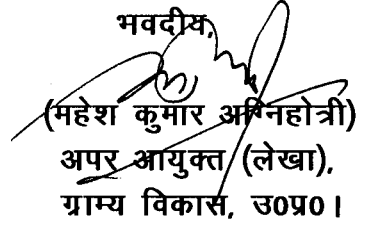 भवदीय,
(महेश कुमार अग्निहोत्री)
अपर आयुक्त (लेखा),
ग्राम्य विकास, उ0प्र0।